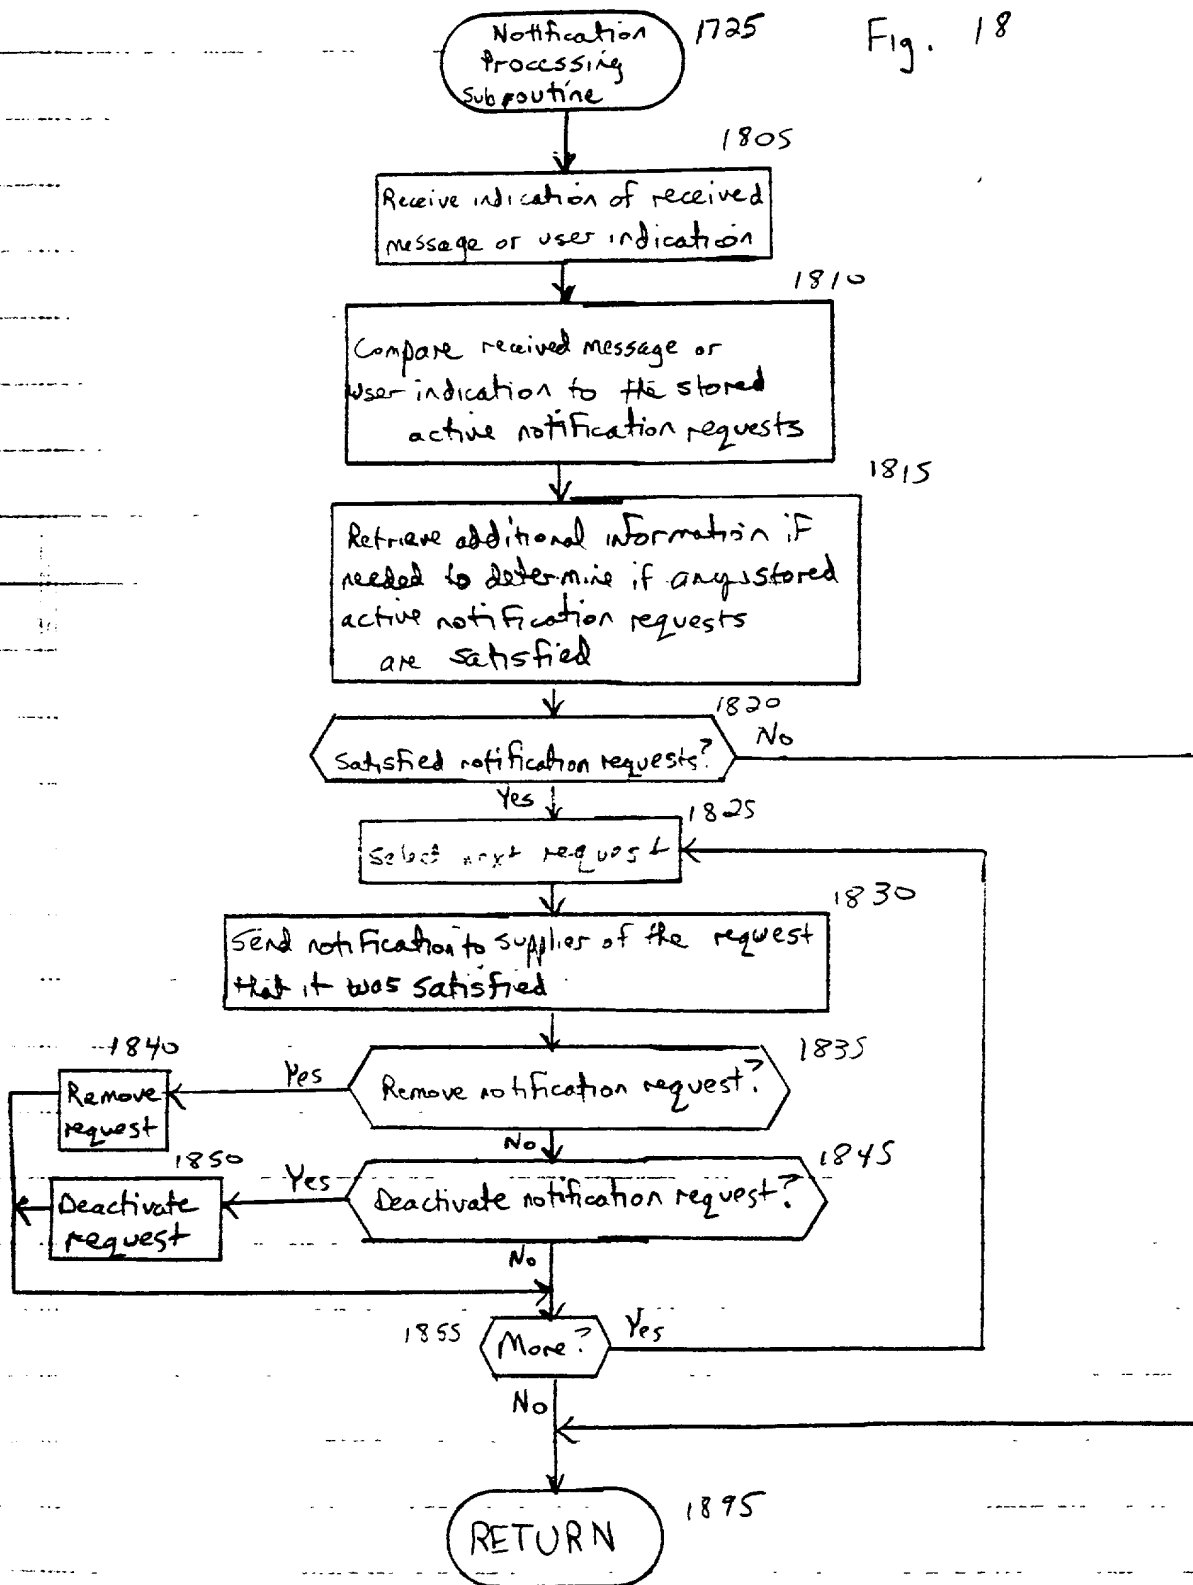 Notification 1725 Fig. 18
Processing
Subroutine
1805
Receive indication of received
message or user indication
1810
Compare received message or
user indication to the stored
active notification requests
1815
Retrieve additional information if
needed to determine if any stored
active notification requests
are satisfied
1820
Satisfied notification requests? No
Yes
1825
Select next request
1830
Send notification to supplier of the request
that it was satisfied
1840 1835
Remove notification request? Yes
Remove
request
No
1850 1845
Deactivate notification request? Yes
Deactivate
request
No
1855 More? Yes
No
1895
RETURN